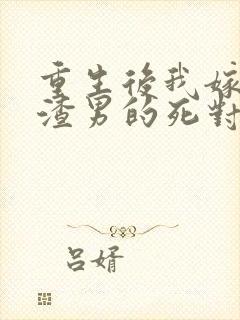 重生後我嫁
渣男的死對
呂婿